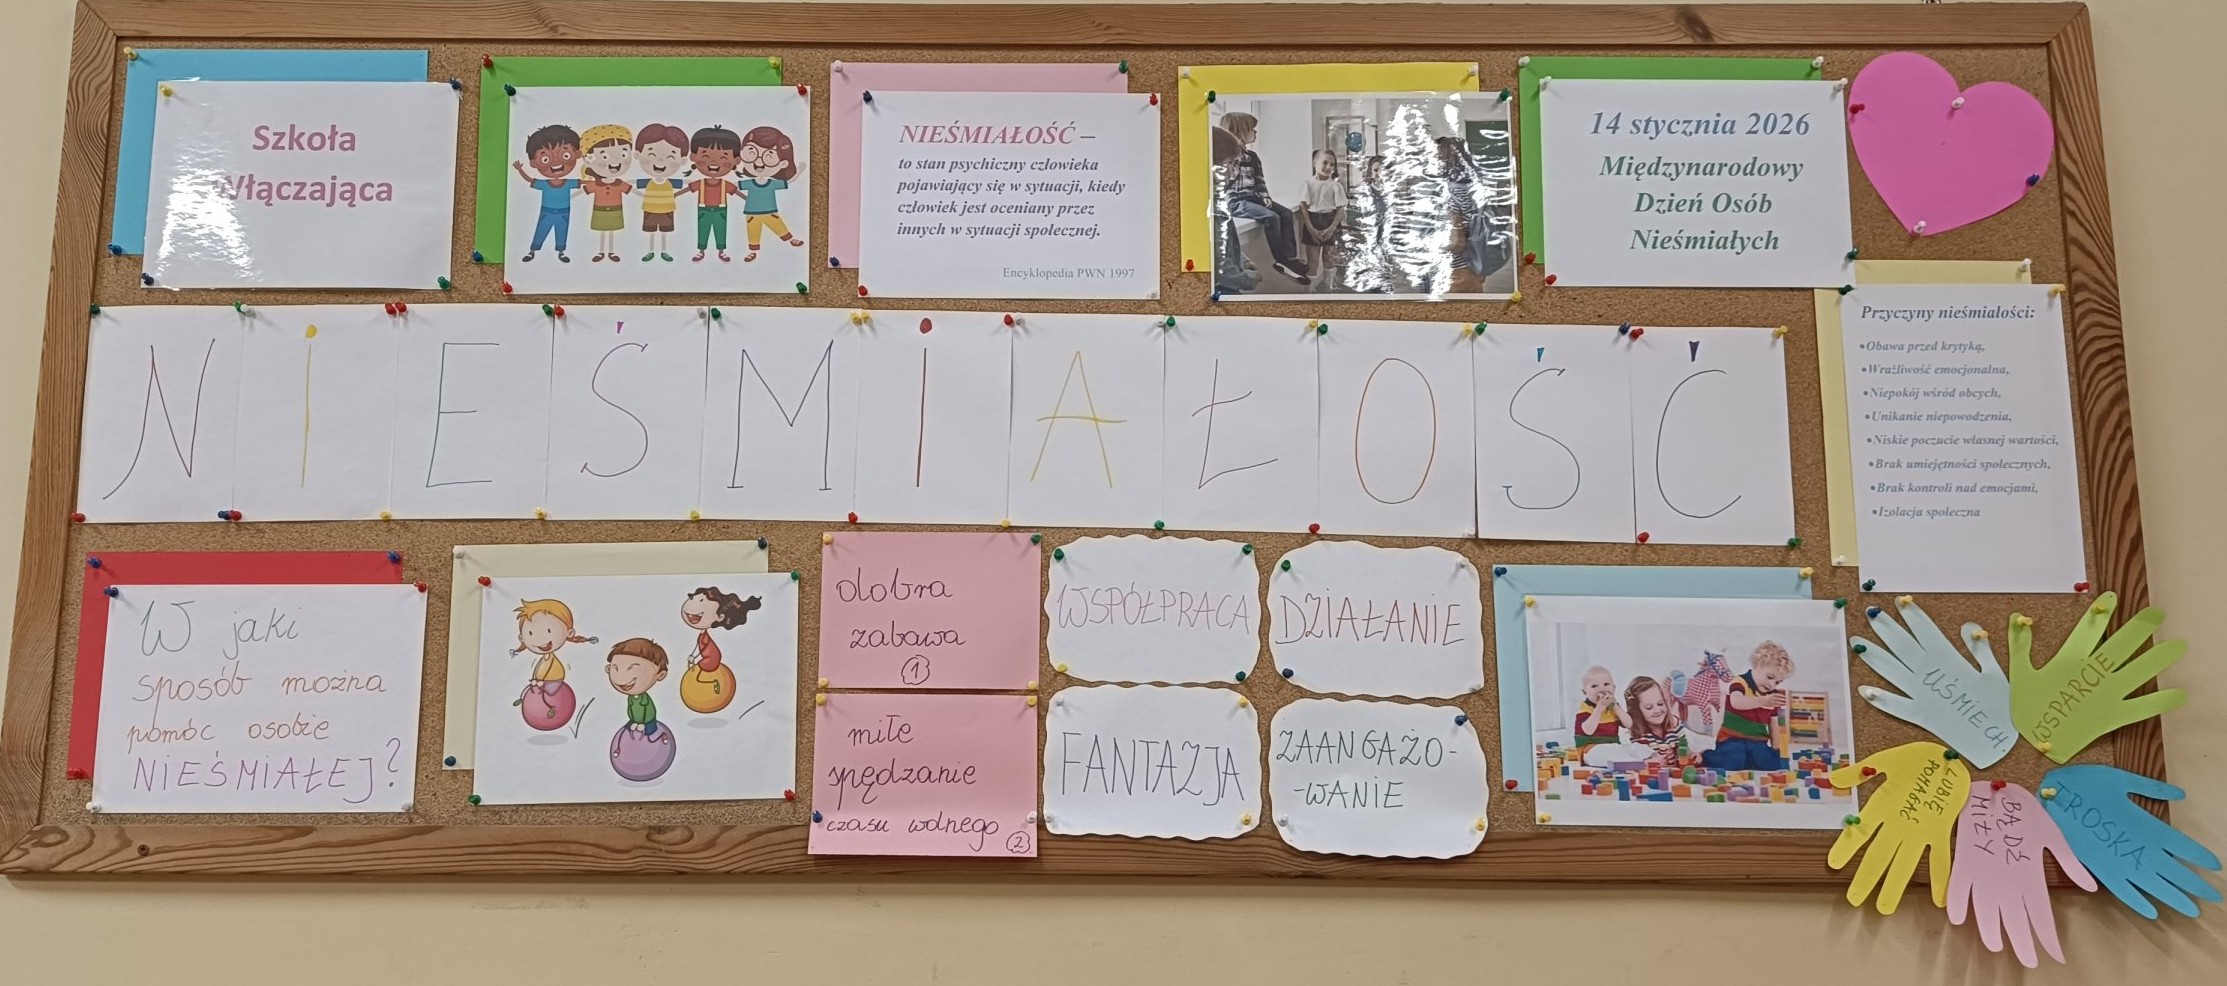 Szkoła
Włączająca
NIEŚMIAŁOŚĆ –
to stan psychiczny człowieka
pojawiający się w sytuacji, kiedy
człowiek jest oceniany przez
innych w sytuacji społecznej.
Encyklopedia PWN 1997
14 stycznia 2026
Międzynarodowy
Dzień Osób
Nieśmiałych
NIEŚMIAŁOŚĆ
Przyczyny nieśmiałości:
•Obawa przed krytyką,
•Wrażliwość emocjonalna,
•Niepokój wśród obcych,
•Unikanie niepowodzenia,
•Niskie poczucie własnej wartości,
•Brak umiejętności społecznych,
•Brak kontroli nad emocjami,
•Izolacja społeczna
W jaki
sposób można
pomóc osobie
NIEŚMIAŁEJ?
dobra
zabawa
1
miłe
spędzanie
czasu wolnego
2
WSPÓŁPRACA
DZIAŁANIE
FANTAZJA
ZAANGAŻO-
-WANIE
UŚMIECH.
WSPARCIE
LUBIĘ
POMAGAĆ
BĄDŹ
MIŁY
TROSKA